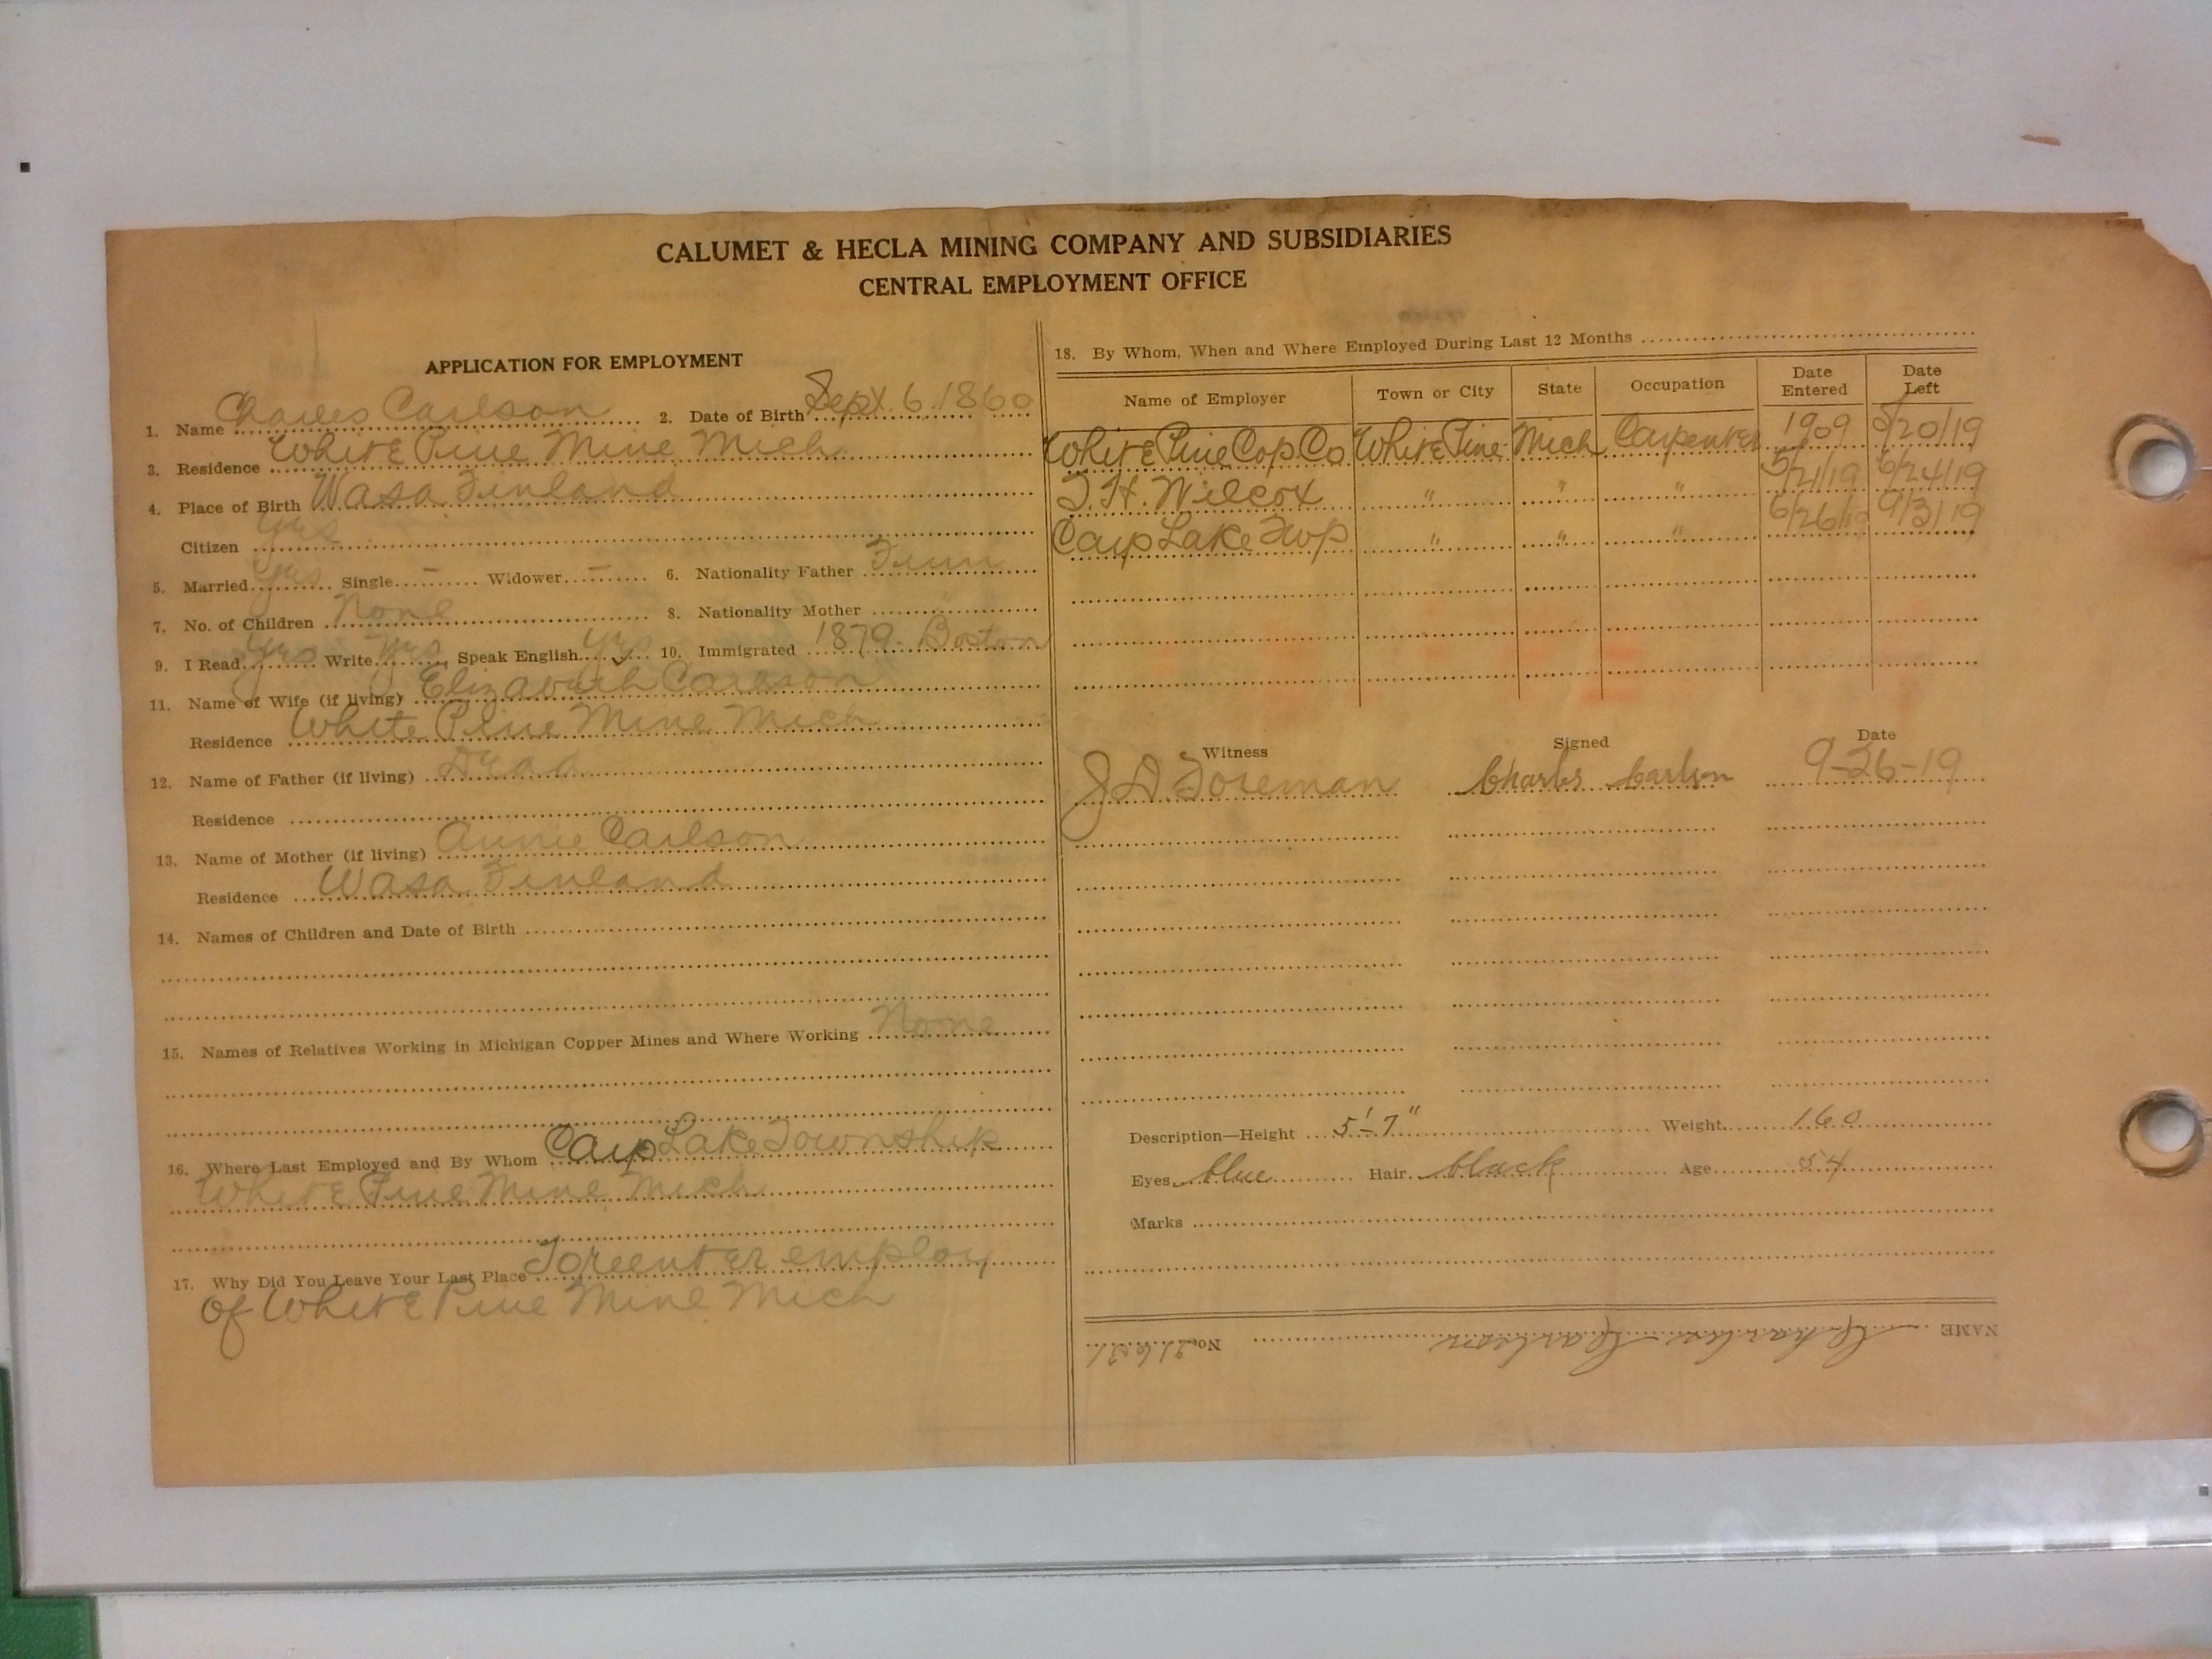 CALUMET & HECLA MINING COMPANY AND SUBSIDIARIES
CENTRAL EMPLOYMENT OFFICE
APPLICATION FOR EMPLOYMENT
1. Name Charles Carlson 2. Date of Birth Sept. 6. 1860
3. Residence White Pine Mine Mich.
4. Place of Birth Wasa Finland
Citizen Yes
5. Married Yes Single - Widower - 6. Nationality Father Finn
7. No. of Children None 8. Nationality Mother "
9. I Read Yes Write Yes Speak English Yes 10. Immigrated 1879 - Boston
11. Name of Wife (if living) Elizabeth Carlson
Residence White Pine Mine Mich
12. Name of Father (if living) Dead
Residence
13. Name of Mother (if living) Annie Carlson
Residence Wasa Finland
14. Names of Children and Date of Birth
15. Names of Relatives Working in Michigan Copper Mines and Where Working None
16. Where Last Employed and By Whom Carp Lake Township
White Pine Mine Mich
17. Why Did You Leave Your Last Place To reenter employ
of White Pine Mine Mich
18. By Whom, When and Where Employed During Last 12 Months
Name of Employer Town or City State Occupation Date Entered Date Left
White Pine Cop Co White Pine Mich Carpenter 1909 5/20/19
T. H. Wilcox " " " 5/21/19 6/24/19
Carp Lake Twp " " " 6/26/19 9/3/19
Witness Signed Date
J. D. Foreman Charles Carlson 9-26-19
Description—Height 5'-7" Weight 160
Eyes blue Hair black Age 54
Marks
NAME Charles Carlson No.